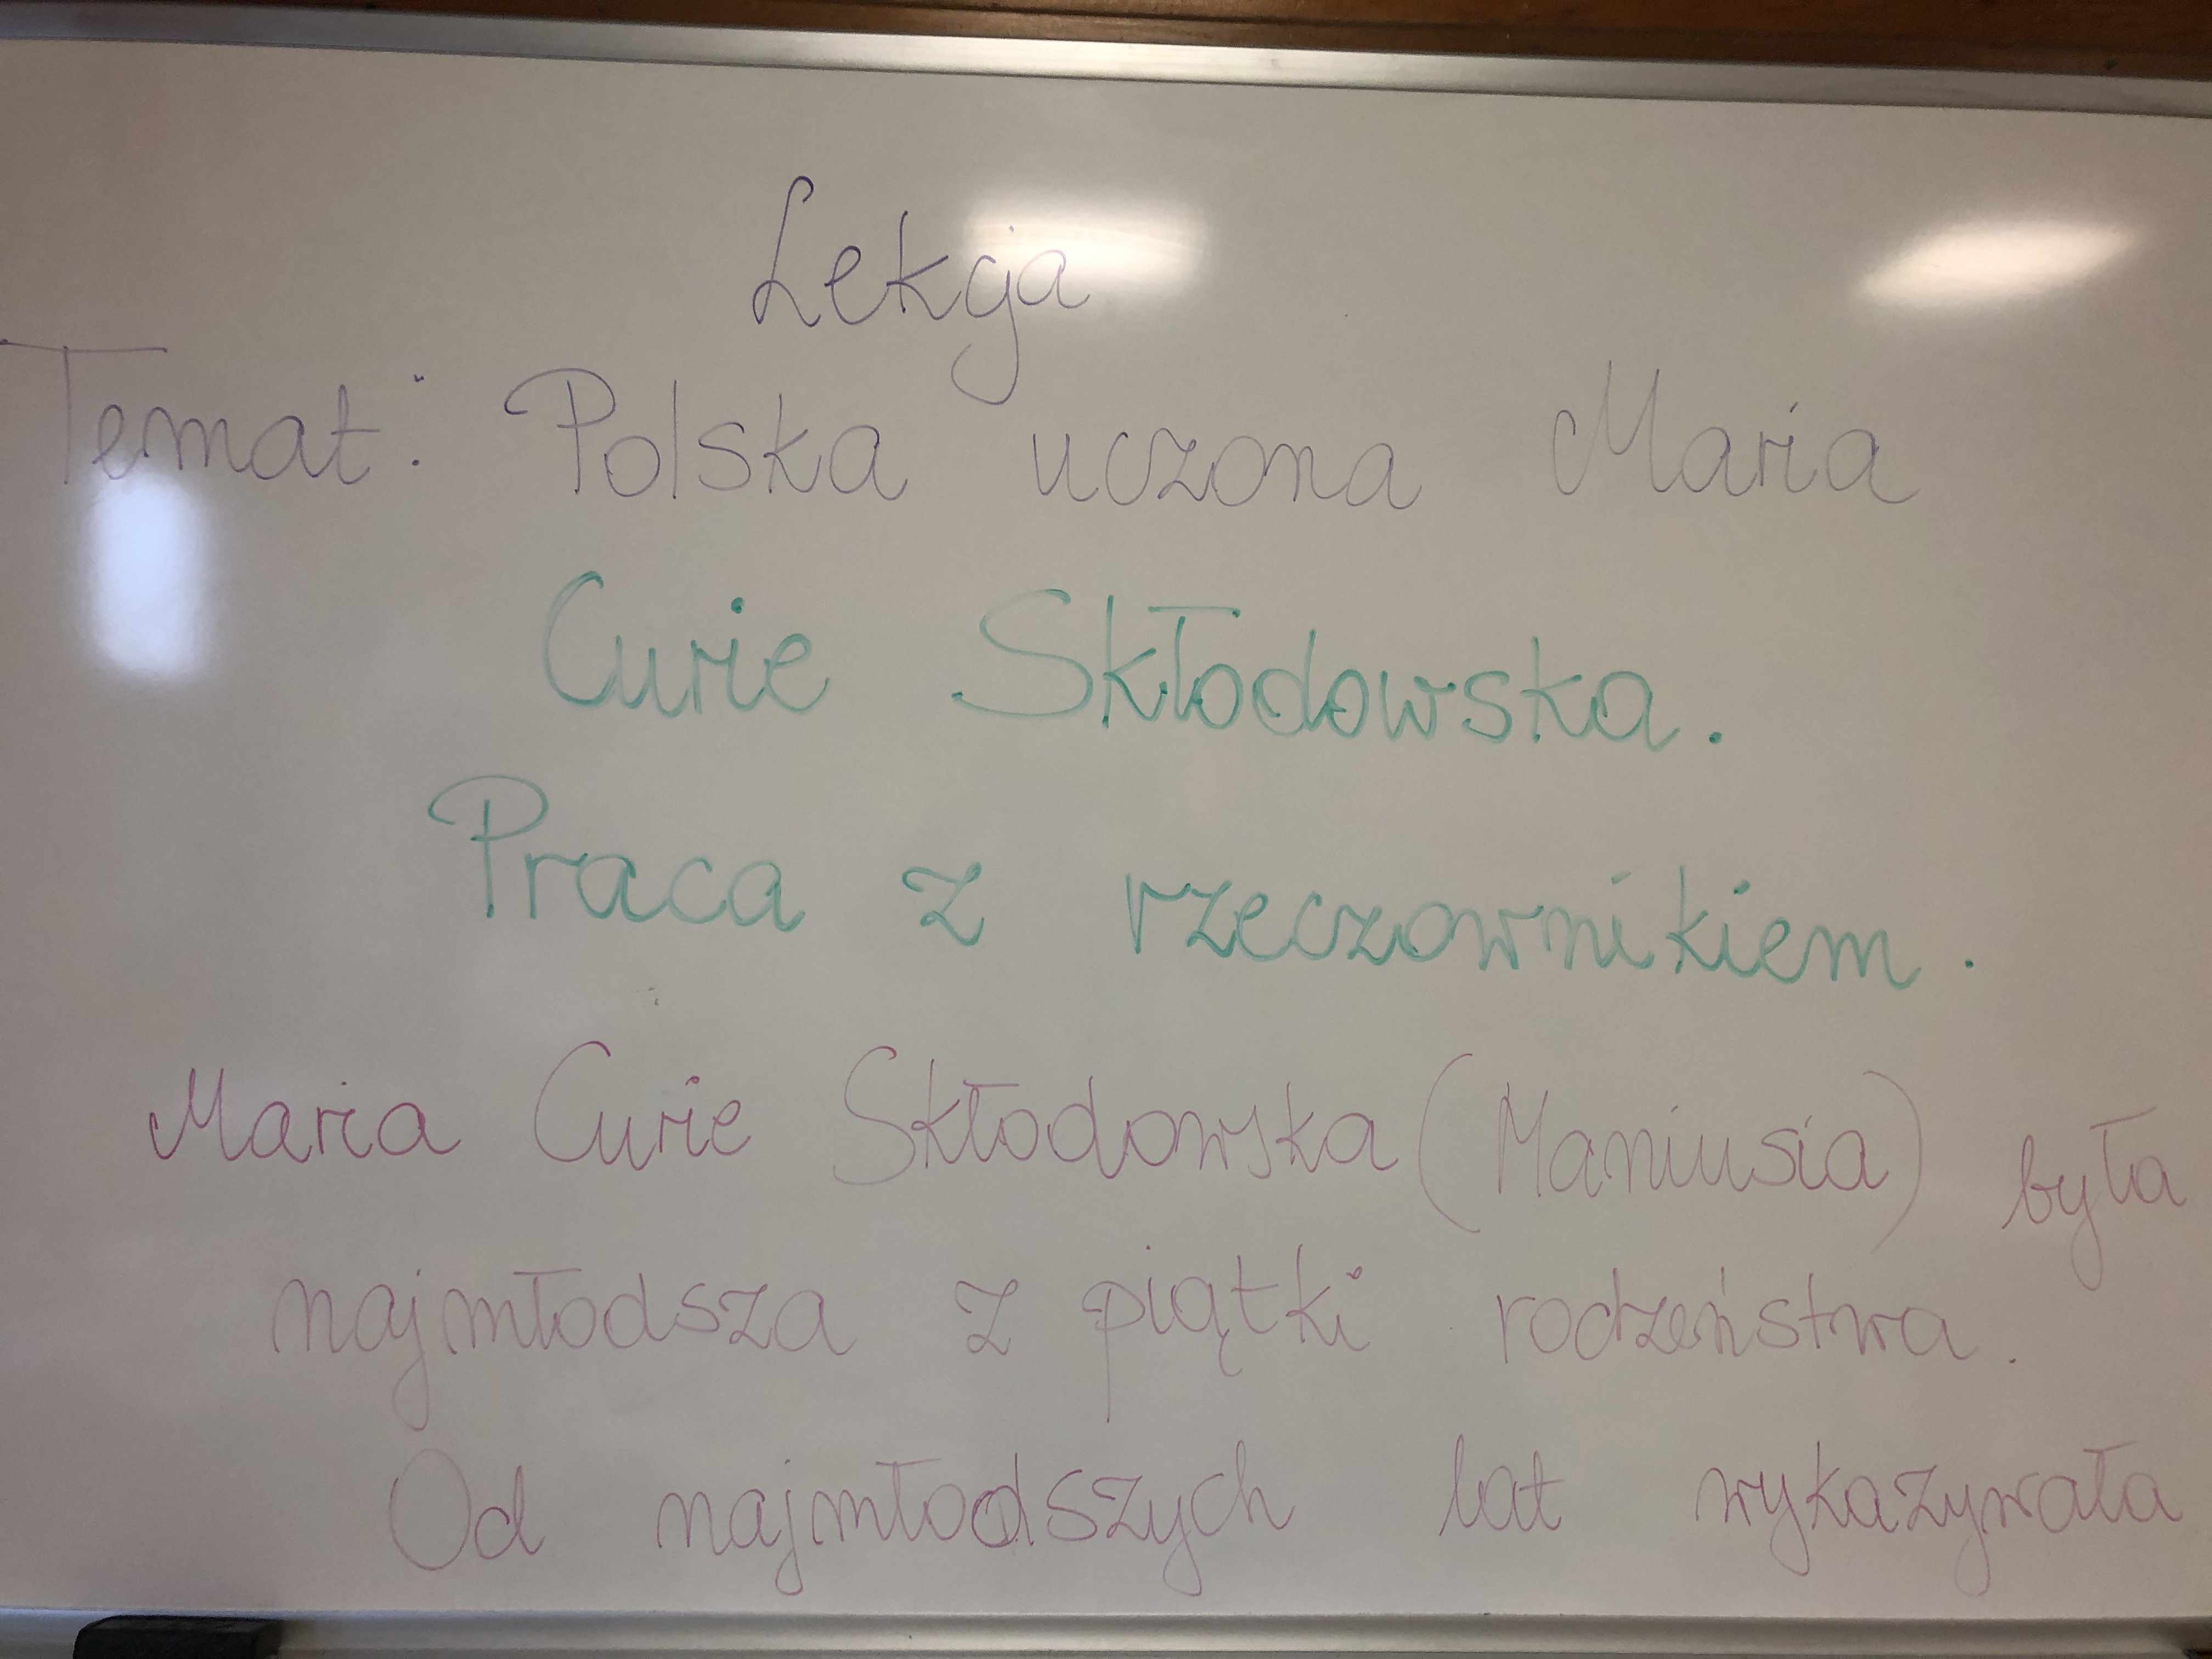 Lekcja
Temat: Polska uczona Maria
Curie Skłodowska.
Praca z rzeczownikiem.
Maria Curie Skłodowska (Maniusia) była
najmłodsza z piątki rodzeństwa.
Od najmłodszych lat wykazywała